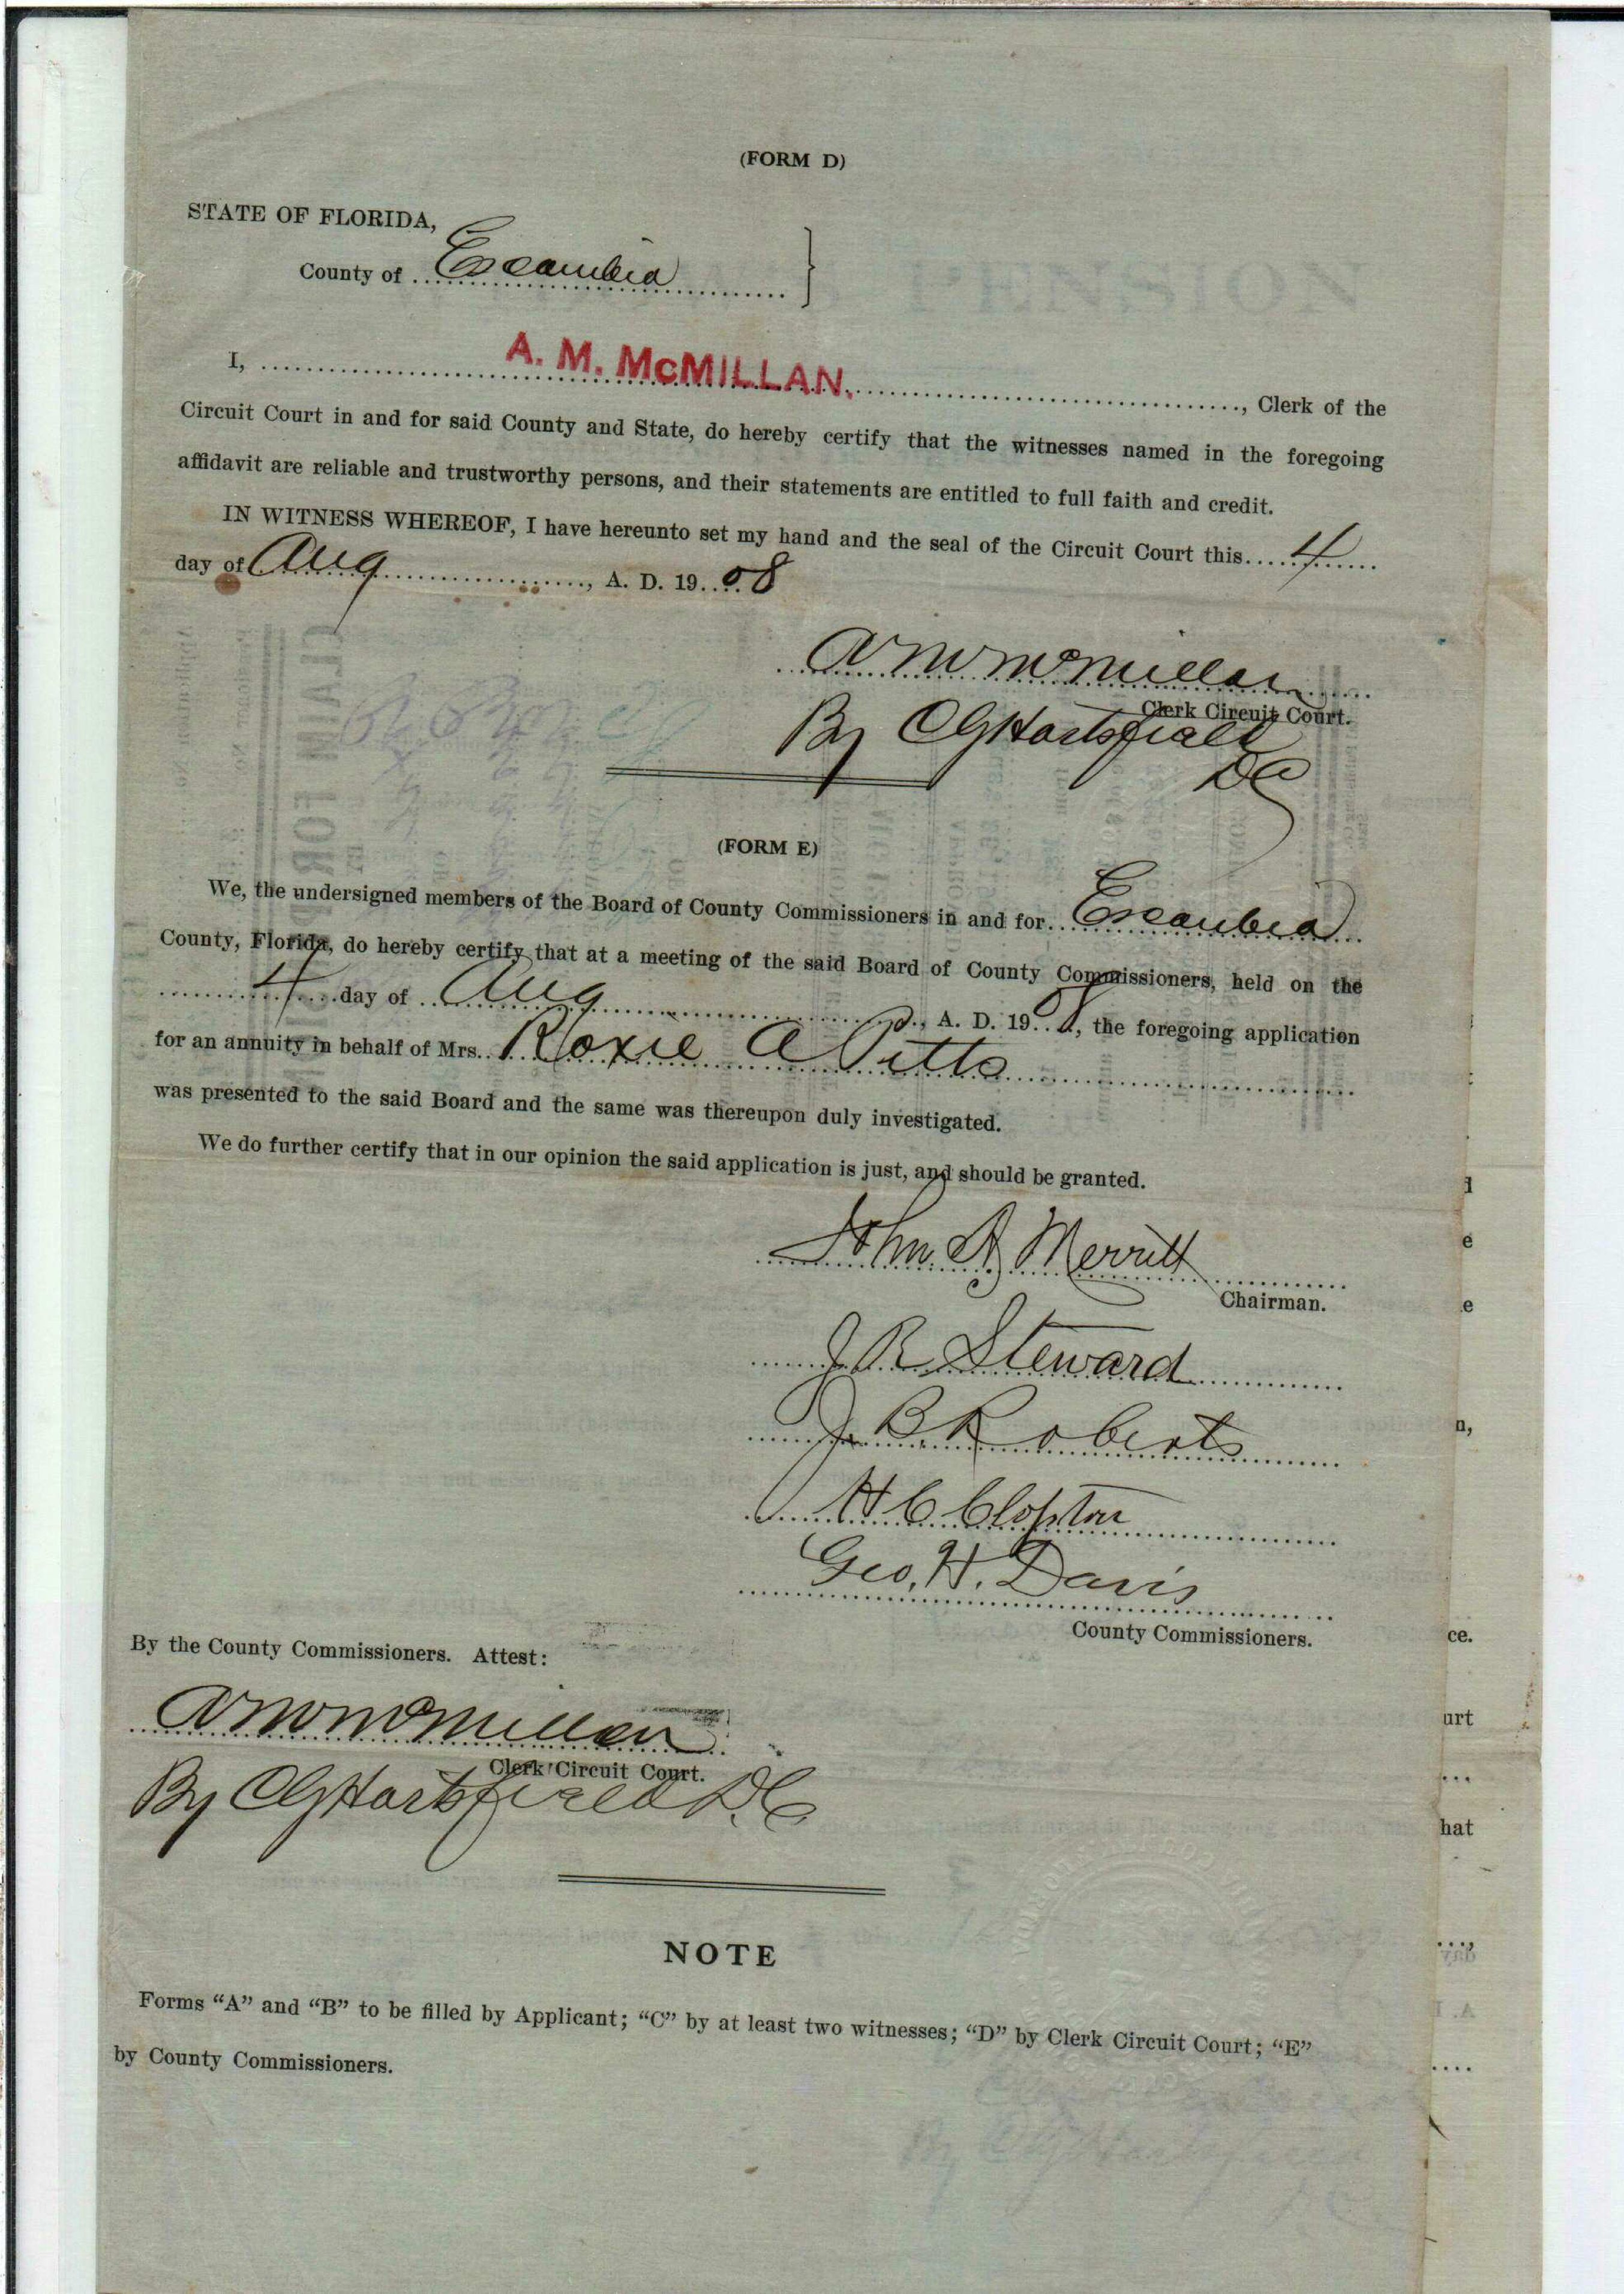 (FORM D)
STATE OF FLORIDA,
County of Escambia
I, A. M. McMILLAN, Clerk of the
Circuit Court in and for said County and State, do hereby certify that the witnesses named in the foregoing
affidavit are reliable and trustworthy persons, and their statements are entitled to full faith and credit.
IN WITNESS WHEREOF, I have hereunto set my hand and the seal of the Circuit Court this 4
day of Aug, A. D. 1908
A M McMillan
Clerk Circuit Court.
By C G Hartsfield
DC
(FORM E)
We, the undersigned members of the Board of County Commissioners in and for Escambia
County, Florida, do hereby certify that at a meeting of the said Board of County Commissioners, held on the
4 day of Aug, A. D. 1908, the foregoing application
for an annuity in behalf of Mrs. Roxie A Pitts
was presented to the said Board and the same was thereupon duly investigated.
We do further certify that in our opinion the said application is just, and should be granted.
John A Merritt
Chairman.
J R Steward
J. B Roberts
H C Clopton
Geo. H. Davis
County Commissioners.
By the County Commissioners. Attest:
A M McMillan
Clerk Circuit Court.
By C G Hartsfield D.C.
NOTE
Forms “A” and “B” to be filled by Applicant; “C” by at least two witnesses; “D” by Clerk Circuit Court; “E”
by County Commissioners.